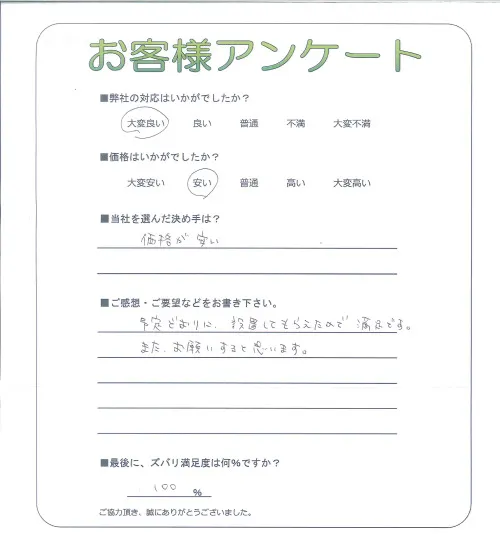 お客様アンケート
■弊社の対応はいかがでしたか？
大変良い 良い 普通 不満 大変不満
■価格はいかがでしたか？
大変安い 安い 普通 高い 大変高い
■当社を選んだ決め手は？
価格が安い
■ご感想・ご要望などをお書き下さい。
予定どおりに、設置してもらえたので満足です。
また、お願いすると思います。
■最後に、ズバリ満足度は何%ですか？
100 %
ご協力頂き、誠にありがとうございました。